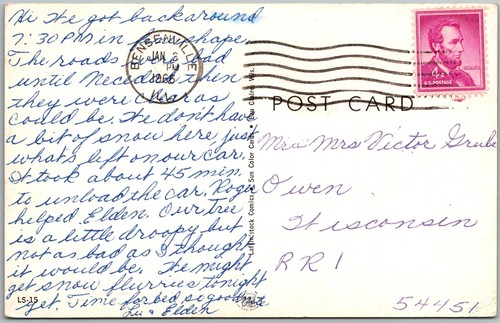 Hi We got back around
7:30 PM in shape.
The roads were bad
until Necedah then
they were clear as
could be. We don't have
a bit of snow here just
what's left on our car.
It took about 45 min.
to unload the car. Roger
helped Elden. Our tree
is a little droopy but
not as bad as I thought
it would be. We might
get snow flurries tonight
yet. Time for bed so good nite
Lu & Elden
LS-15
BENSENVILLE
JAN 3
PM
1966
ILL.
4¢
U.S. POSTAGE
POST CARD
Mr & Mrs Victor Grube
Owen
Wisconsin
RR 1
54451